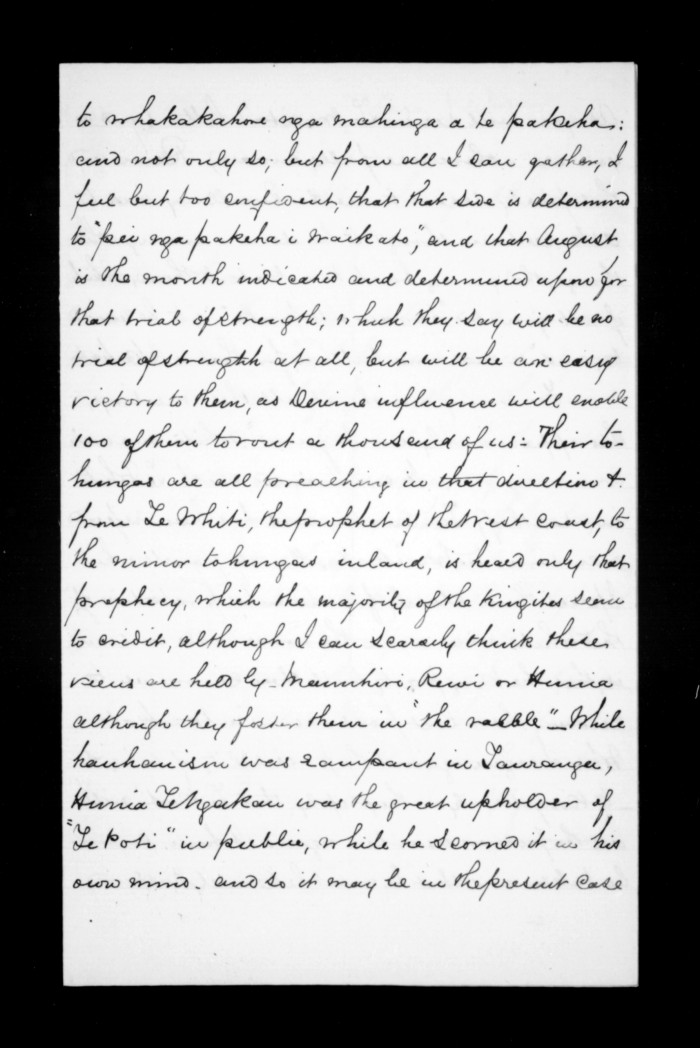 to whakakahore nga mahinga a te pakeha:
and not only so; but from all I can gather, I
feel but too confident, that that side is determined
to "pei nga pakeha i Waikato", and that August
is the month indicated and determined upon for
that trial of strength; which they say will be no
trial of strength at all, but will be an easy
victory to them, as Devine influence will enable
100 of them to rout a thousand of us = Their to-
hungas are all preaching in that direction &
from Te Whiti, the prophet of the West Coast, to
the minor tohungas inland, is heard only that
prophecy, which the majority of the Kingites seem
to credit, although I can scarcely think these
views are held by Manuhiri, Rewi or Hunia
although they foster them in "the rabble" _ While
hauhauism was rampant in Tauranga,
Hunia Te Ngakau was the great upholder of
"Te Poti" in public, while he scorned it in his
own mind - and so it may be in the present case